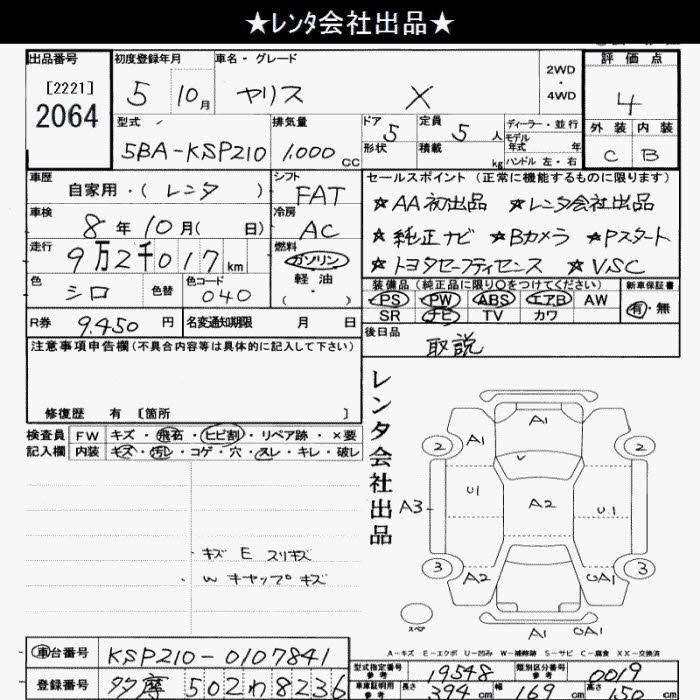 ★レンタ会社出品★
出品番号 初度登録年月 車名・グレード 評価点
[2221]
2064
5 10月 ヤリス X 2WD・4WD 4
外装 内装
C B
型式 排気量 ドア 定員 ディーラー・並行
5BA-KSP210 1,000cc 5 5人 モデル年式 年
形状 積載 kg ハンドル 左・右
車歴 シフト セールスポイント(正常に機能するものに限ります)
自家用・(レンタ) FAT ★AA初出品 ★レンタ会社出品
車検 冷房
8年10月(日) AC ★純正ナビ ★Bカメラ ★Pスタート
走行 燃料
9万2千017km ガソリン ★トヨタセーフティセンス ★VSC
軽油
・( )
色 色替 色コード 装備品(純正品に限り○をつけてください) 新車保証書
シロ 040 PS PW ABS エアB AW 有・無
SR ナビ TV カワ
R券 9.450円 名変通知期限 月 日 後日品
取説
注意事項申告欄(不具合内容等は具体的に記入して下さい)
修復歴 有 〔箇所 〕
検査員 FW キズ・飛石・ヒビ割・リペア跡・×要
記入欄 内装 キズ・汚レ・コゲ・穴・スレ・キレ・破レ
レンタ会社出品
A1
2 A1 2
U1 A2 U1
A3
3 A2 UA1 3
スペア A1 UA1
・キズ E スリキズ
・W キャップキズ
A-キズ E-エクボ U-凹み W-補修跡 S-サビ C-腐食 XX-交換済
車台番号 KSP210-0107841
型式指定番号 参考 19548 類別区分番号 参考 0019
登録番号 多摩 502わ8236
車庫証明用 参考 長さ 394cm 幅 169cm 高さ 150cm